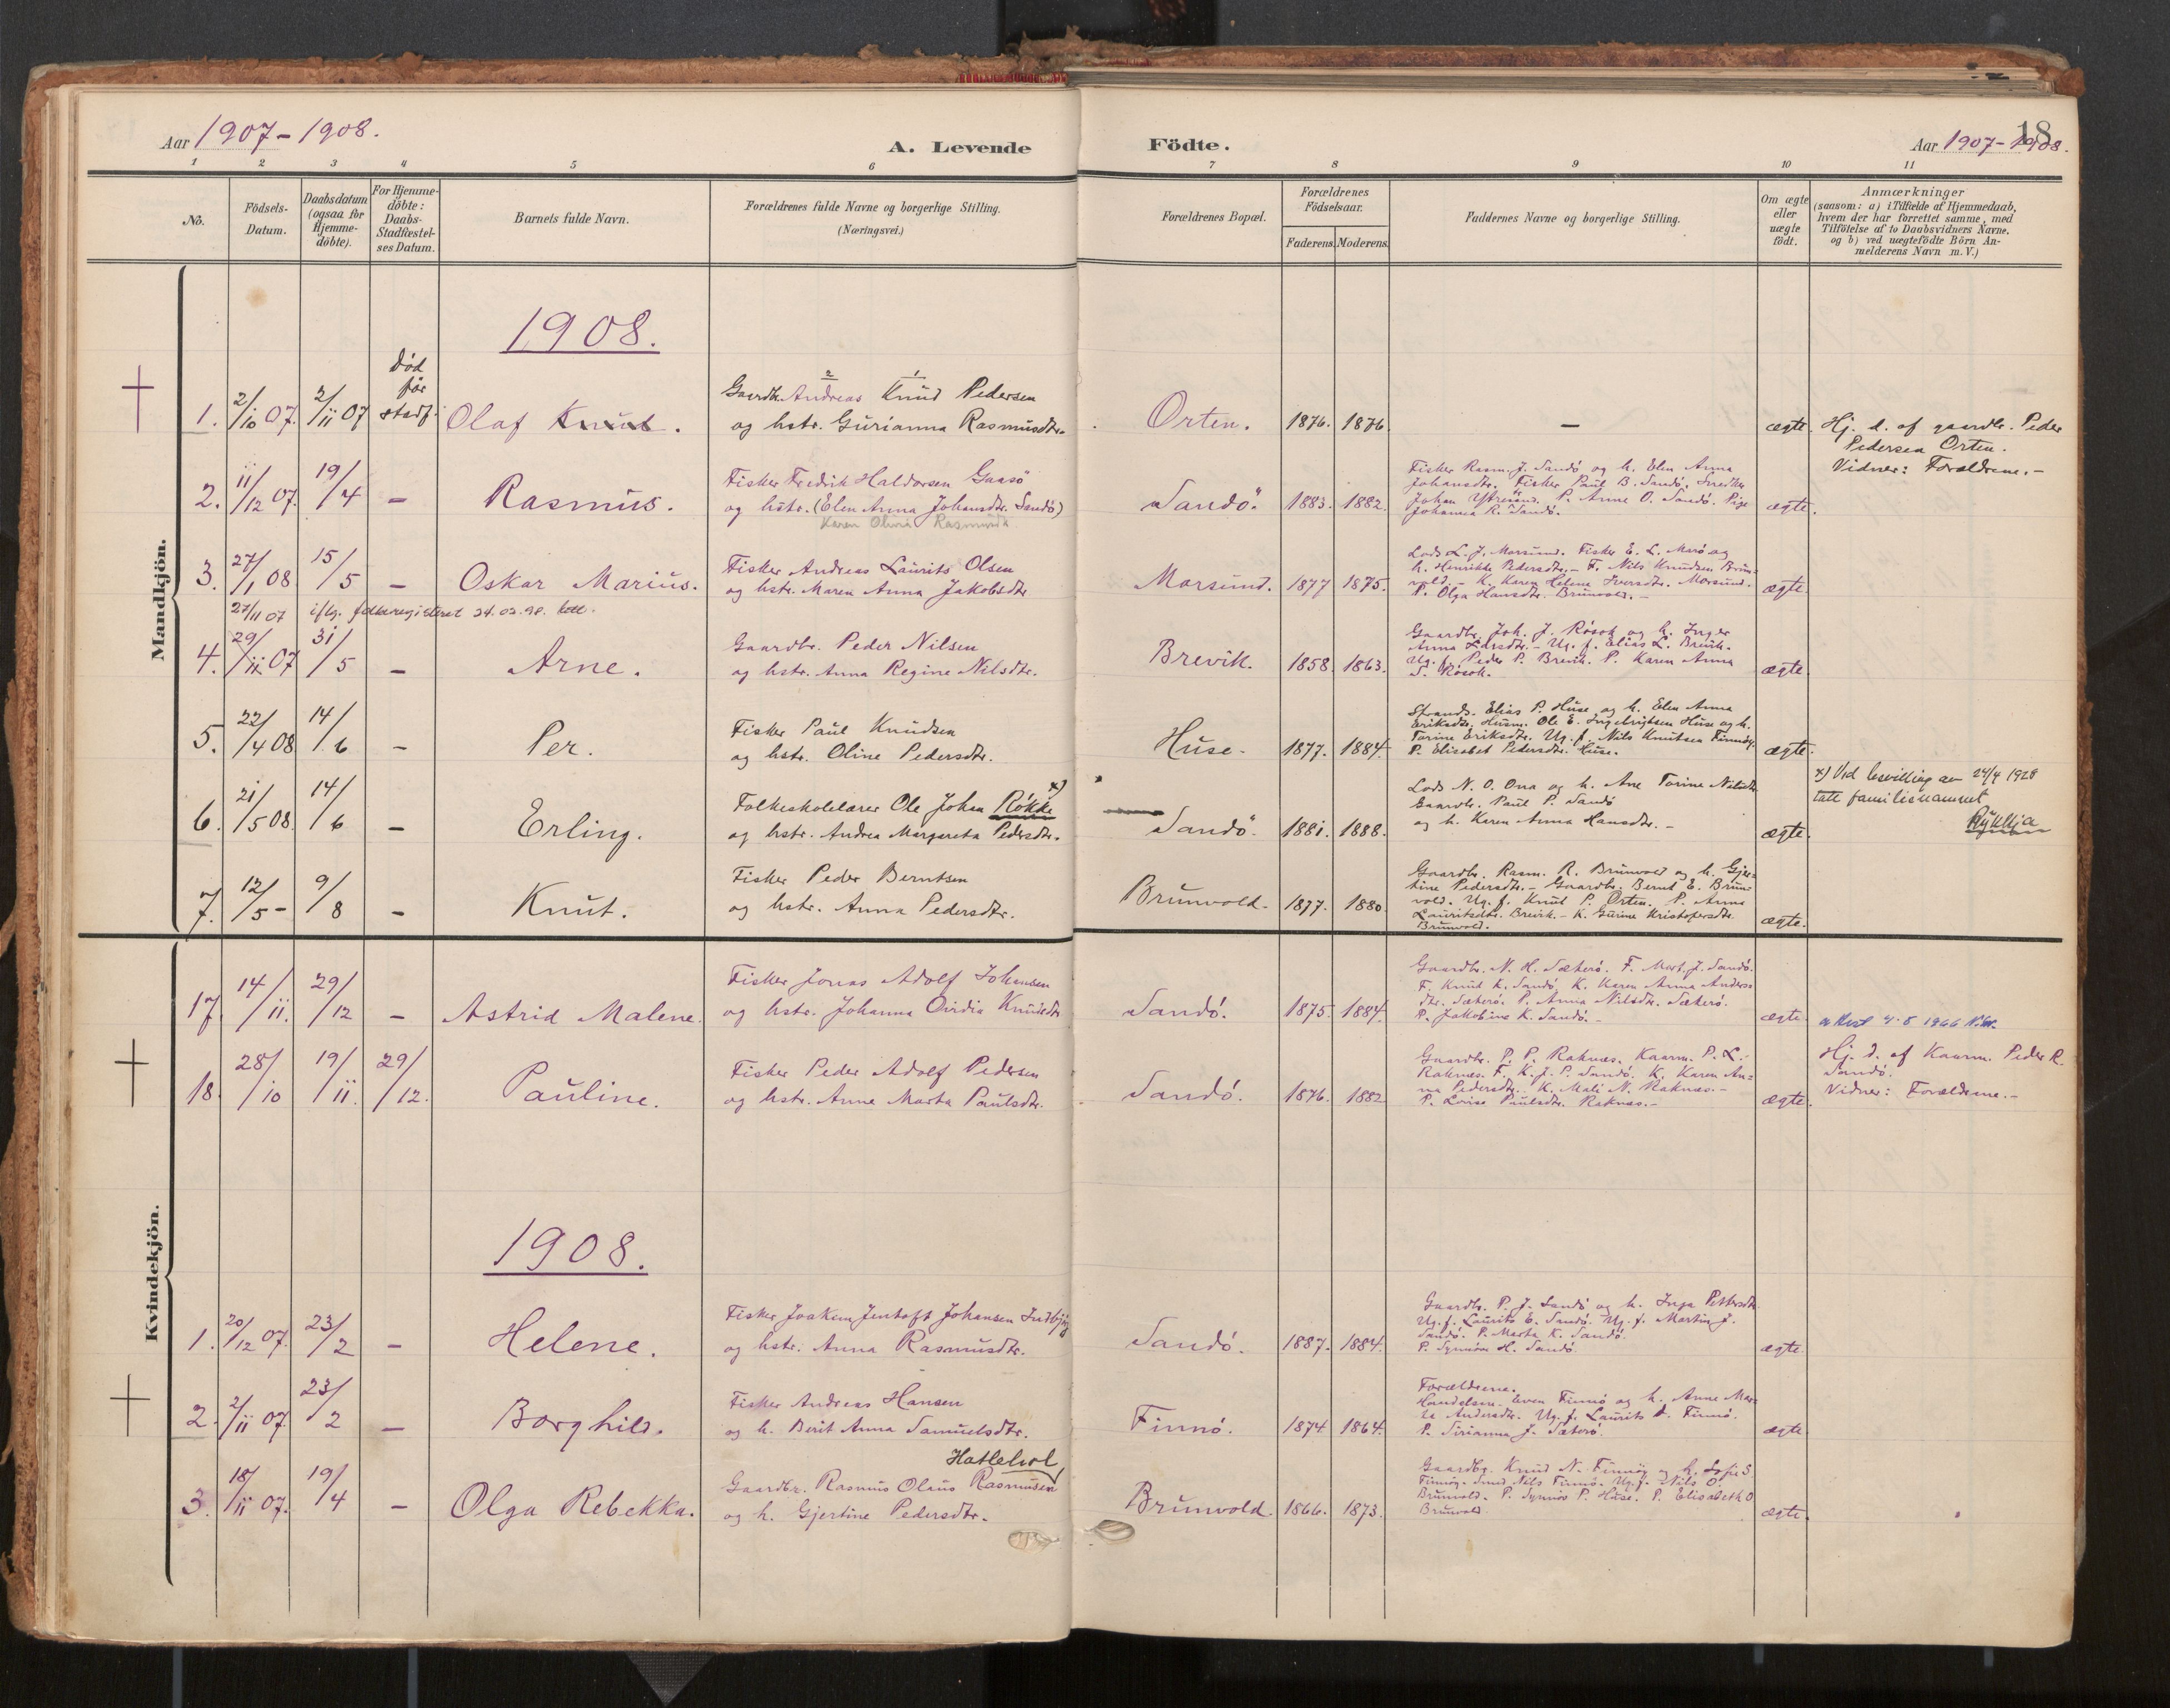 Aar 1907-1908.
A. Levende
Födte.
Aar 1907-1908.
18
1 2 3 4 5 6 7 8 9 10 11
No.
Födsels-
Datum.
Daabsdatum
(ogsaa for
Hjemme-
döbte).
For Hjemme-
döbte:
Daabs-
Stadfæstel-
ses Datum.
Barnets fulde Navn.
Forældrenes fulde Navne og borgerlige Stilling.
(Næringsvei.)
Forældrenes Bopæl.
Forældrenes
Födselsaar.
Faderens. Moderens.
Faddernes Navne og borgerlige Stilling.
Om ægte
eller
uægte
födt.
Anmærkninger
(saasom: a) i Tilfælde af Hjemmedaab,
hvem der har forrettet samme, med
Tilföielse af to Daabsvidners Navne,
og b) ved uægtefödte Börn An-
melderens Navn m.V.)
Mandkjön.
1908.
1. 2/10 07. 2/11 07
Død
før
stadf.
Olaf Knut.
Gaardb. Andreas Knud Pedersen
og hstr. Gurianna Rasmusdtr.
Orten. 1876. 1876 — ægte.
Hj. d. af gaardbr. Peder
Pedersen Orten.
Vidner: Forældrene.-
2. 11/12 07. 19/4 - Rasmus.
Fisker Fredrik Haldorsen Gaasö
og hstr. (Elen Anna Johansdtr. Sandö)
Karen Olivia Rasmusdt.
Sandö. 1883. 1882.
Fisker Rasm. J. Sandö og h. Elen Anna
Johansdtr. Fisker Paul B. Sandö. Snedker
Johan P. Anne O. Sandö. Pige
Johanna R. Sandö.
ægte.
3. 27/1 08 15/5 - Oskar Marius.
Fisker Andreas Laurits Olsen
og hstr. Maren Anna Jakobsdtr
Morsund. 1877 1875.
Lods L. J. Morsund. Fisker E. L. Marö og
h. Henrikke Pedersdtr. - F. Nils Knudsen Brun-
vold. - K. Karen Helene Iversdtr. Morsund.
P. Olga Hansdtr. Brunvold. -
ægte.
27/11 07 iflg. folkeregisteret 24.02.98.
4. 29/11 07 31/5 - Arne.
Gaardbr. Peder Nilsen
og hstr. Anna Regine Nilsdtr.
Brevik. 1858. 1863.
Gaardbr. Joh. J. Rösok og h. Inger
Anna Larsdtr. - Ug. f. Elias L. Brevik.
Ug. f. Peder P. Brevik. P. Karen Anna
S. Rösok.
ægte.
5. 22/4 08 14/6 - Per.
Fisker Paul Knudsen
og hstr. Oline Pedersdtr.
Huse. 1877. 1884.
Strands. Elias P. Huse og h. Elen Anna
Eriksdtr. Husm. Ole E. Ingebrigtsen Huse og h.
Torine Eriksdtr. Ug. f. Nils Knutsen Finnöy.
P. Elisabet Pedersdtr. Huse.
ægte.
6. 21/5 08. 14/6 - Erling.
Folkeskolelærer Ole Johan Røkke x)
og hstr. Andrea Margareta Pedersdtr.
Sandö. 1881. 1888.
Lods N. O. Ona og h. Ane Torine Nilsdtr
Gaardbr. Paul P. Sandö
og h. Karen Anna Hansdtr. -
ægte.
x) Ved bevilling av 24/4 1928
tatt familienamnet
Rykkja
7. 12/5 - 9/8 - Knut.
Fisker Peder Berntsen
og hstr. Anna Pedersdtr.
Brunvold. 1877. 1880.
Gaardbr. Rasm. R. Brunvold og h. Gjer-
tine Pedersdtr. - Gaardbr. Bernt E. Brun-
vold. Ug. f. Knut P. Orten. P. Anna
Lauritsdtr. Brevik. - K. Gurine Kristofersdtr.
Brunvold.
ægte.
Kvindekjön.
17. 14/11. 29/12 - Astrid Malene.
Fisker Jonas Adolf Johansen
og hstr. Johanna Ovidia Knudsdtr
Sandö. 1875. 1884.
Gaardbr. N. H. Sæterö. F. Mart. J. Sandö.
F. Knut K. Sandö. K. Karen Anna Anders-
dtr. Sæterö. P. Anna Nilsdtr. Sæterö.
P. Jakobine K. Sandö. -
ægte.
attest 4-8 1966
18. 28/10 19/11. 29/12. Pauline.
Fisker Peder Adolf Pedersen
og hstr. Anne Marta Paulsdtr.
Sandö. 1876. 1882
Gaardbr. P. P. Raknæs. Kaarm. P. L.
Raknæs. F. K. J. P. Sandö. K. Karen An-
na Pedersdtr. K. Mali N. Raknæs. -
P. Lovise Paulsdtr. Raknæs. -
ægte.
Hj. d. af Kaarm. Peder R.
Sandö.
Vidner: Forældrene. -
1908.
1. 20/12 07. 23/2 - Helene.
Fisker Joakim Jentoft Johansen
og hstr. Anna Rasmusdtr.
Sandö. 1887. 1884.
Gaardbr. P. J. Sandö og h. Inga Pettersdtr.
Ug. f. Laurits E. Sandö. Ug. f. Martin J.
Sandö. P. Marta K. Sandö.
P. Synnöve H. Sandö.
ægte.
2. 2/11 07. 23/2 - Borghild.
Fisker Andreas Hansen
og h. Berit Anna Samuelsdtr.
Finnö. 1874 1864.
Forældrene.
Handelsm. Even Finnö og h. Anne Mar-
ta Andersdtr. Ug. f. Laurits A. Finnö.
P. Sirianna J. Sæterö.
ægte
3. 18/11 07. 19/4 - Olga Rebekka.
Hatlehol
Gaardbr. Rasmus Olaus Rasmusen
og h. Gjertine Pedersdtr.
Brunvold. 1866. 1873.
Gaardbr. Knud N. Finnöy og h. Sofie S.
Finnöy. Smed Nils Finnö. Ug. f. Nils O.
Brunvold. P. Synnöv P. Huse. P. Elisabeth O
Brunvold.
ægte.